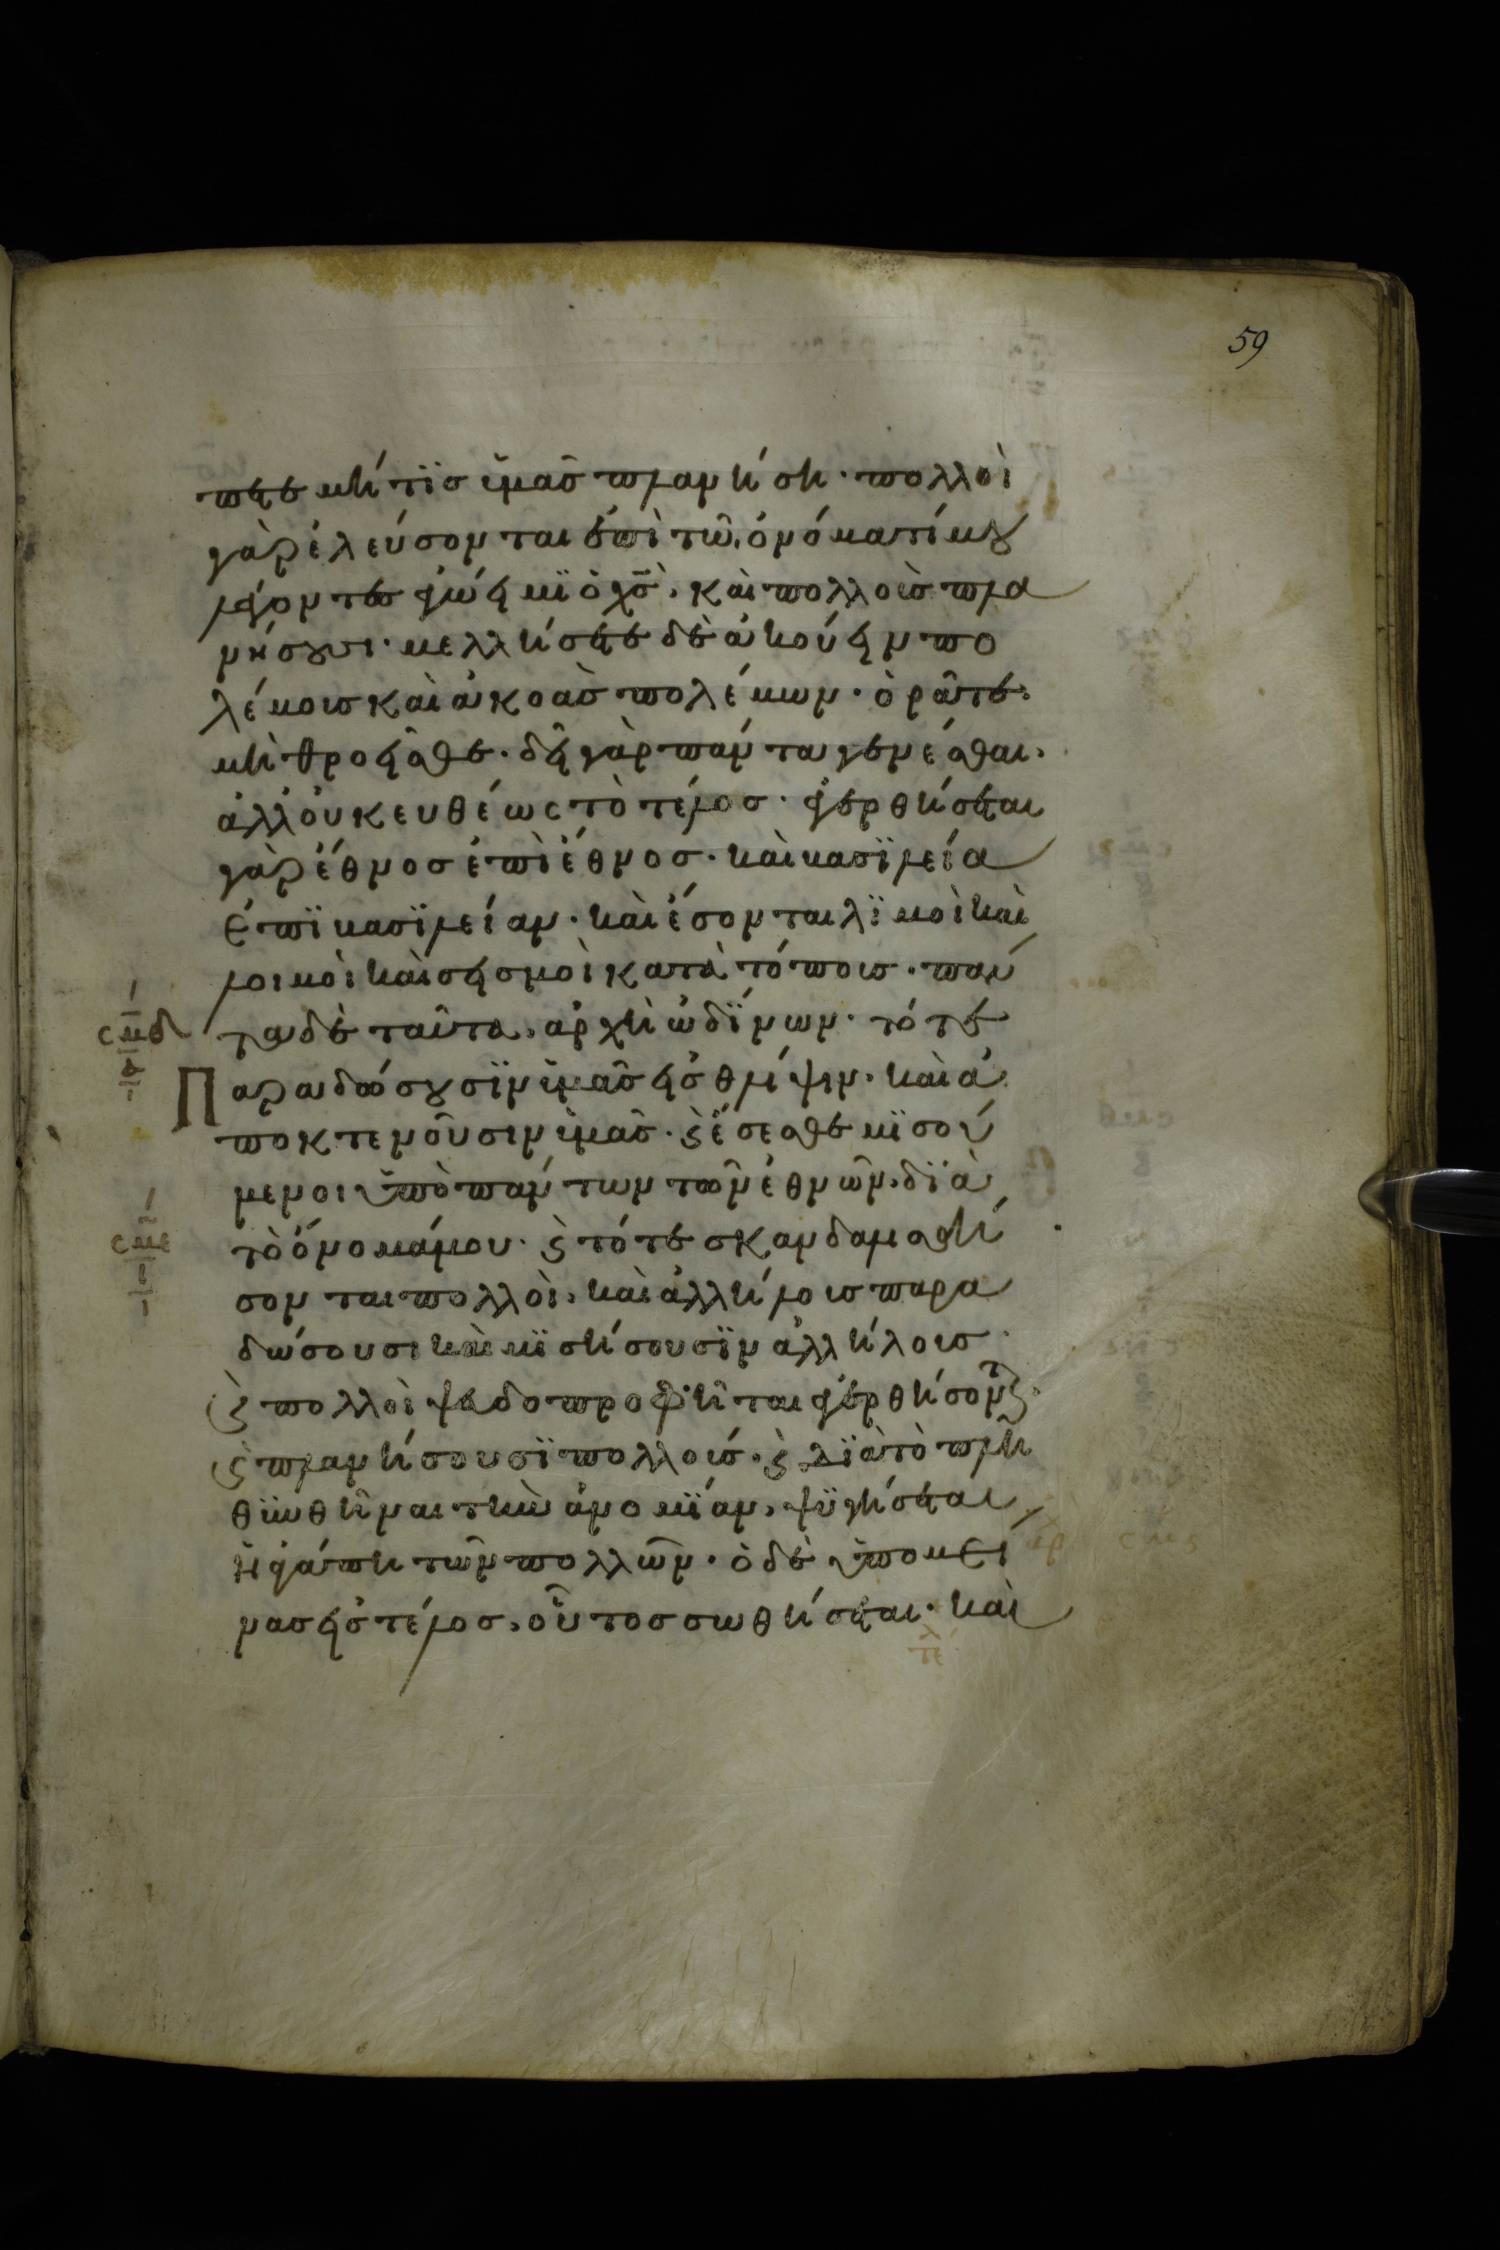 59
πετε μή τϊσ ὑμᾶσ πλανήση · πολλοὶ
γὰρ ἐλεύσονται ἐπὶ τῶ ὀνόματί μου
λέγοντεσ ἐγώ εἰμϊ ὁ χσ̅ · καὶ πολλοὺσ πλα
νήσουσι · μελλήσετε δὲ ἀκούειν πο
λέμουσ καὶ ἀκοὰσ πολέμων · ὁρᾶτε
μὴ θροεῖσθε · δεῖ γὰρ πάντα γενέσθαι ·
ἀλλ' οὐκ ευθέωσ τὸ τέλοσ · ἐγερθήσεται
γὰρ ἔθνοσ ἐπὶ ἔθνοσ · καὶ βασϊλεία
ἐπϊ βασϊλείαν · καὶ ἔσονται λϊμοὶ καὶ
λοιμοὶ καὶ σεισμοὶ κατὰ τόπουσ · πάν
τα δὲ ταῦτα, ἀρχὴ ὠδΐνων · τότε
σμδ
Παραδώσουσϊν ὑμᾶσ εἰσ θλίψιν · καὶ ἀ
ποκτενοῦσιν ὑμᾶσ · ϛ ἔσεσθε μϊσού
μενοι ὑπὸ πάντων τῶν ἐθνῶν, δϊὰ
σμε
τὸ ὄνομά μου · ϛ τότε σκανδαλισθή
σονται πολλοὶ, καὶ ἀλλήλουσ παρα
δώσουσι καὶ μϊσήσουσϊν ἀλλήλουσ ·
ϛ πολλοὶ ψευδοπροφῆται ἐγερθήσοντϛ ·
ϛ πλανήσουσϊ πολλούσ · ϛ δϊὰ τὸ πλη
θϋνθῆναι τὴν ἀνομΐαν, ψϋγήσεται
ἡ ἀγάπη τῶν πολλῶν · ὁ δὲ ὑπομεί
νασ εἰσ τέλοσ, οὗτοσ σωθήσεται · καὶ
τελ